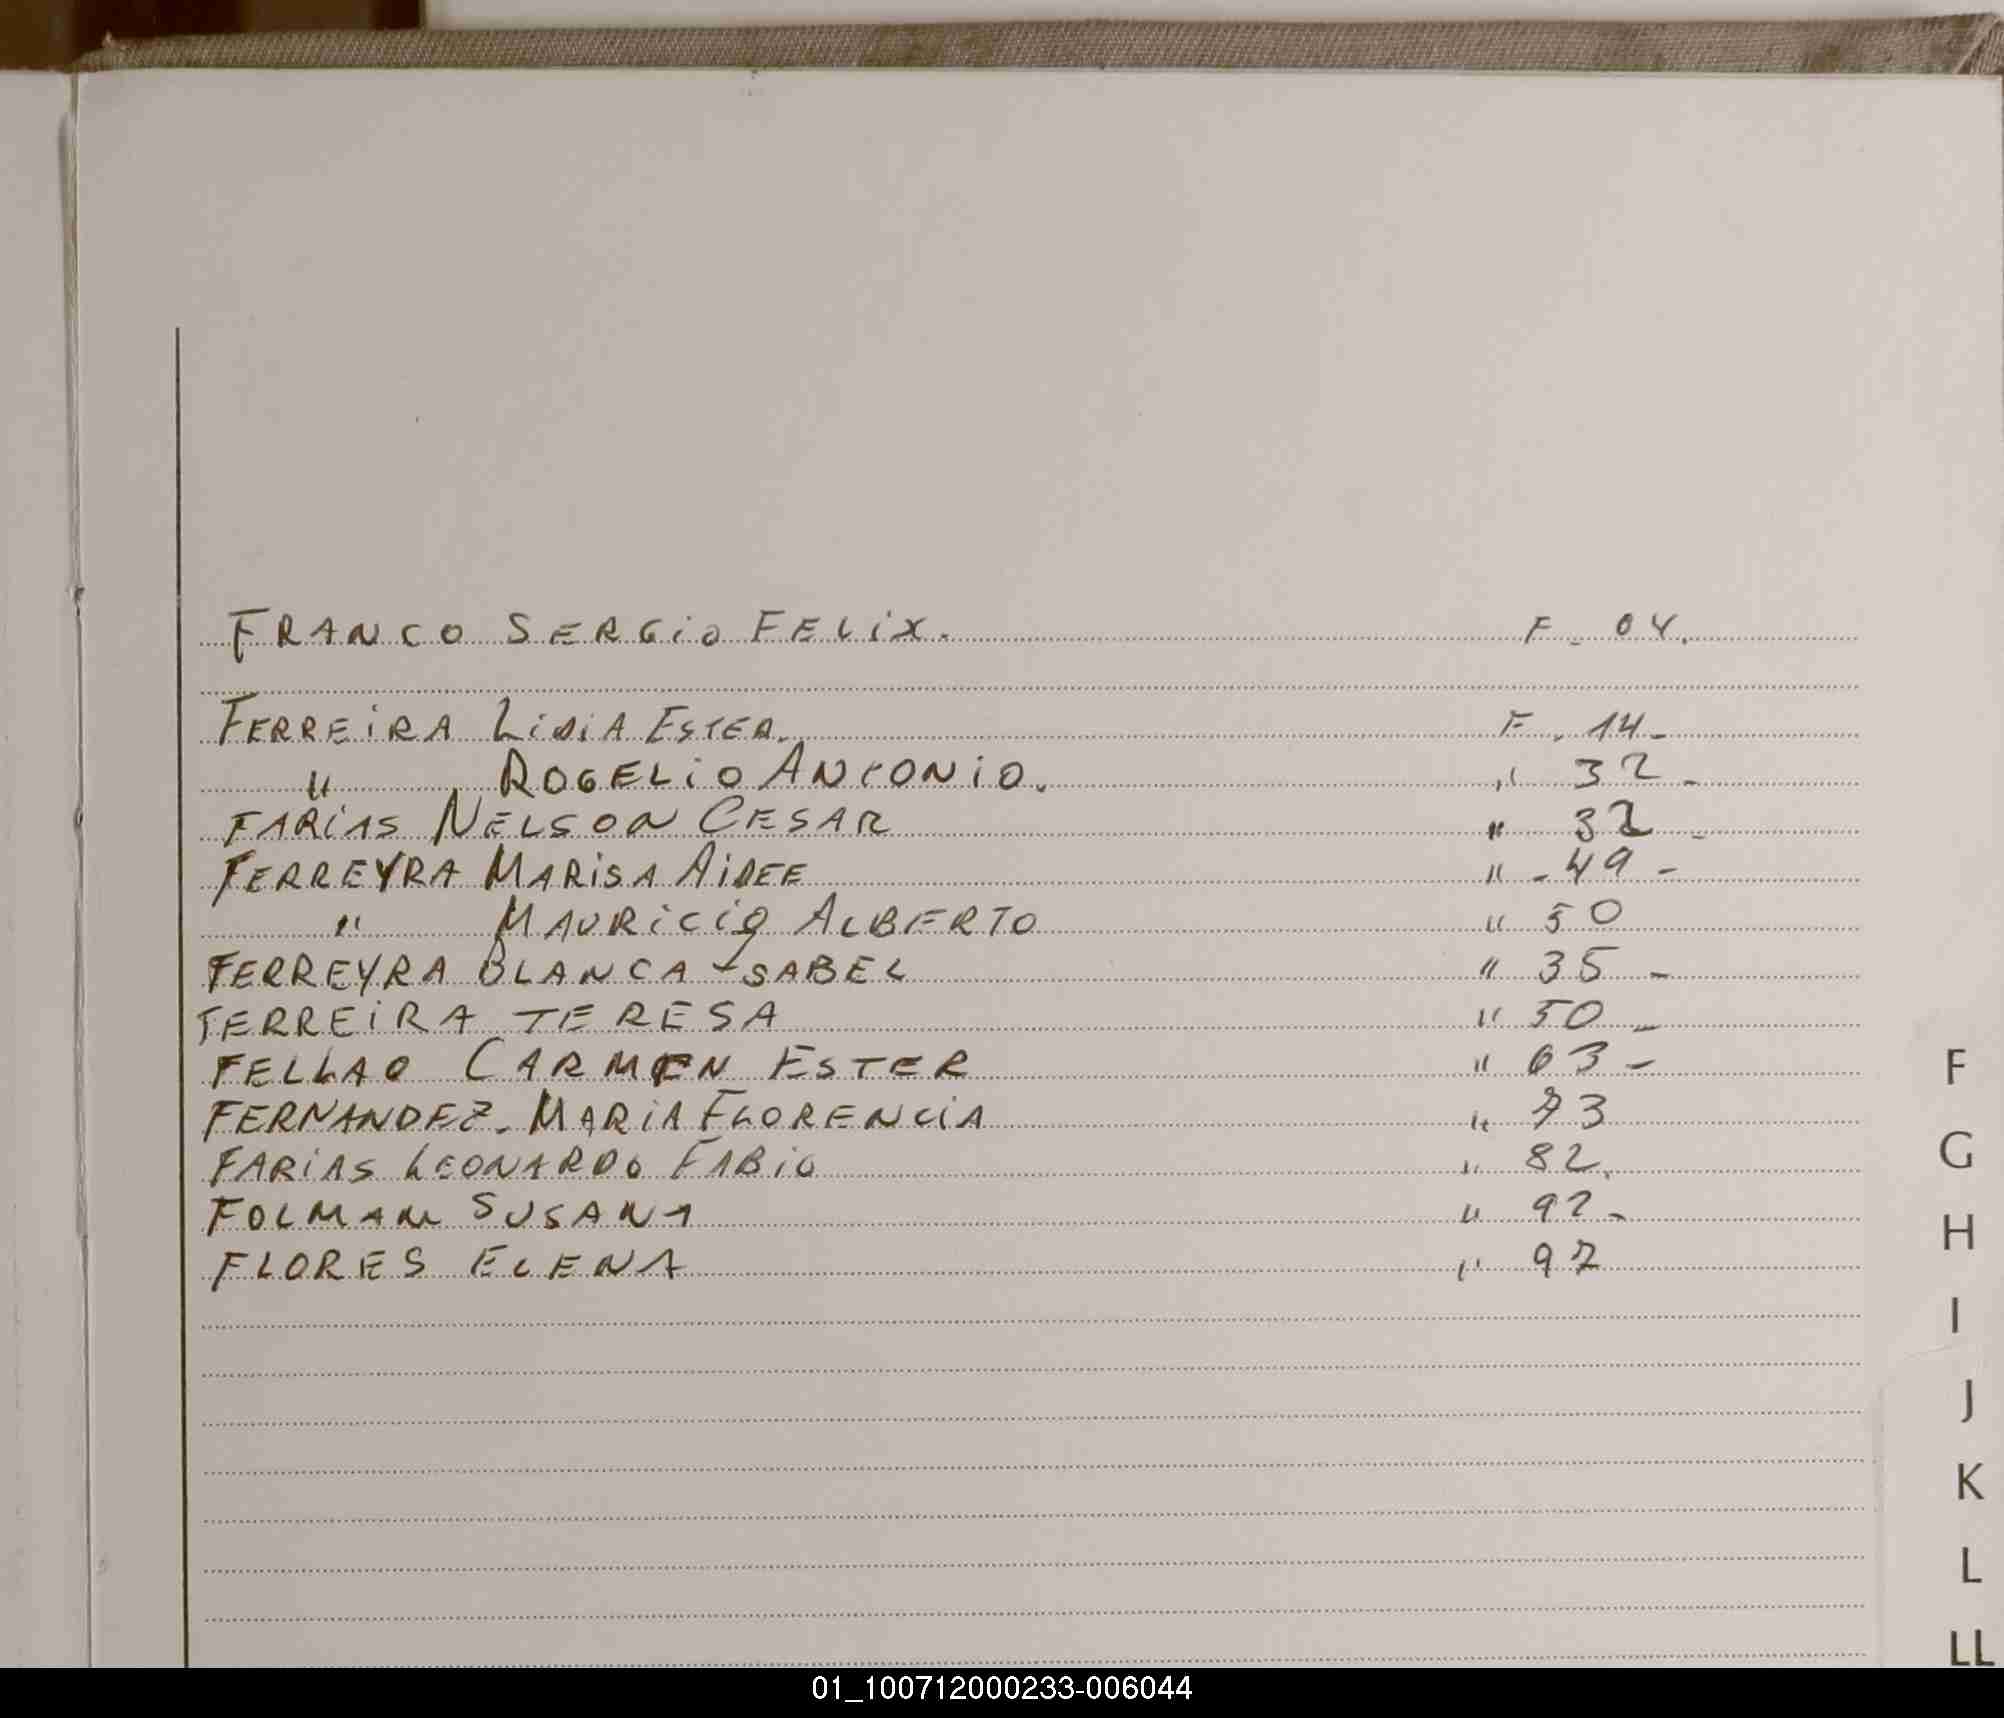 FRANCO SERGIO FELIX. F. 04.
FERREIRA LIDIA ESTER. F. 14-
" ROGELIO ANTONIO. " 32-
FARIAS NELSON CESAR " 32-
FERREYRA MARISA AIDEE " - 49 -
" MAURICIO ALBERTO " 50
FERREYRA BLANCA ISABEL " 35 -
FERREIRA TERESA " 50 -
FELLAO CARMEN ESTER " 63 -
FERNANDEZ. MARIA FLORENCIA " 73
FARIAS LEONARDO FABIO " 82.
FOLMAM SUSANA " 92-
FLORES ELENA " 97
F
G
H
I
J
K
L
LL
01_100712000233-006044